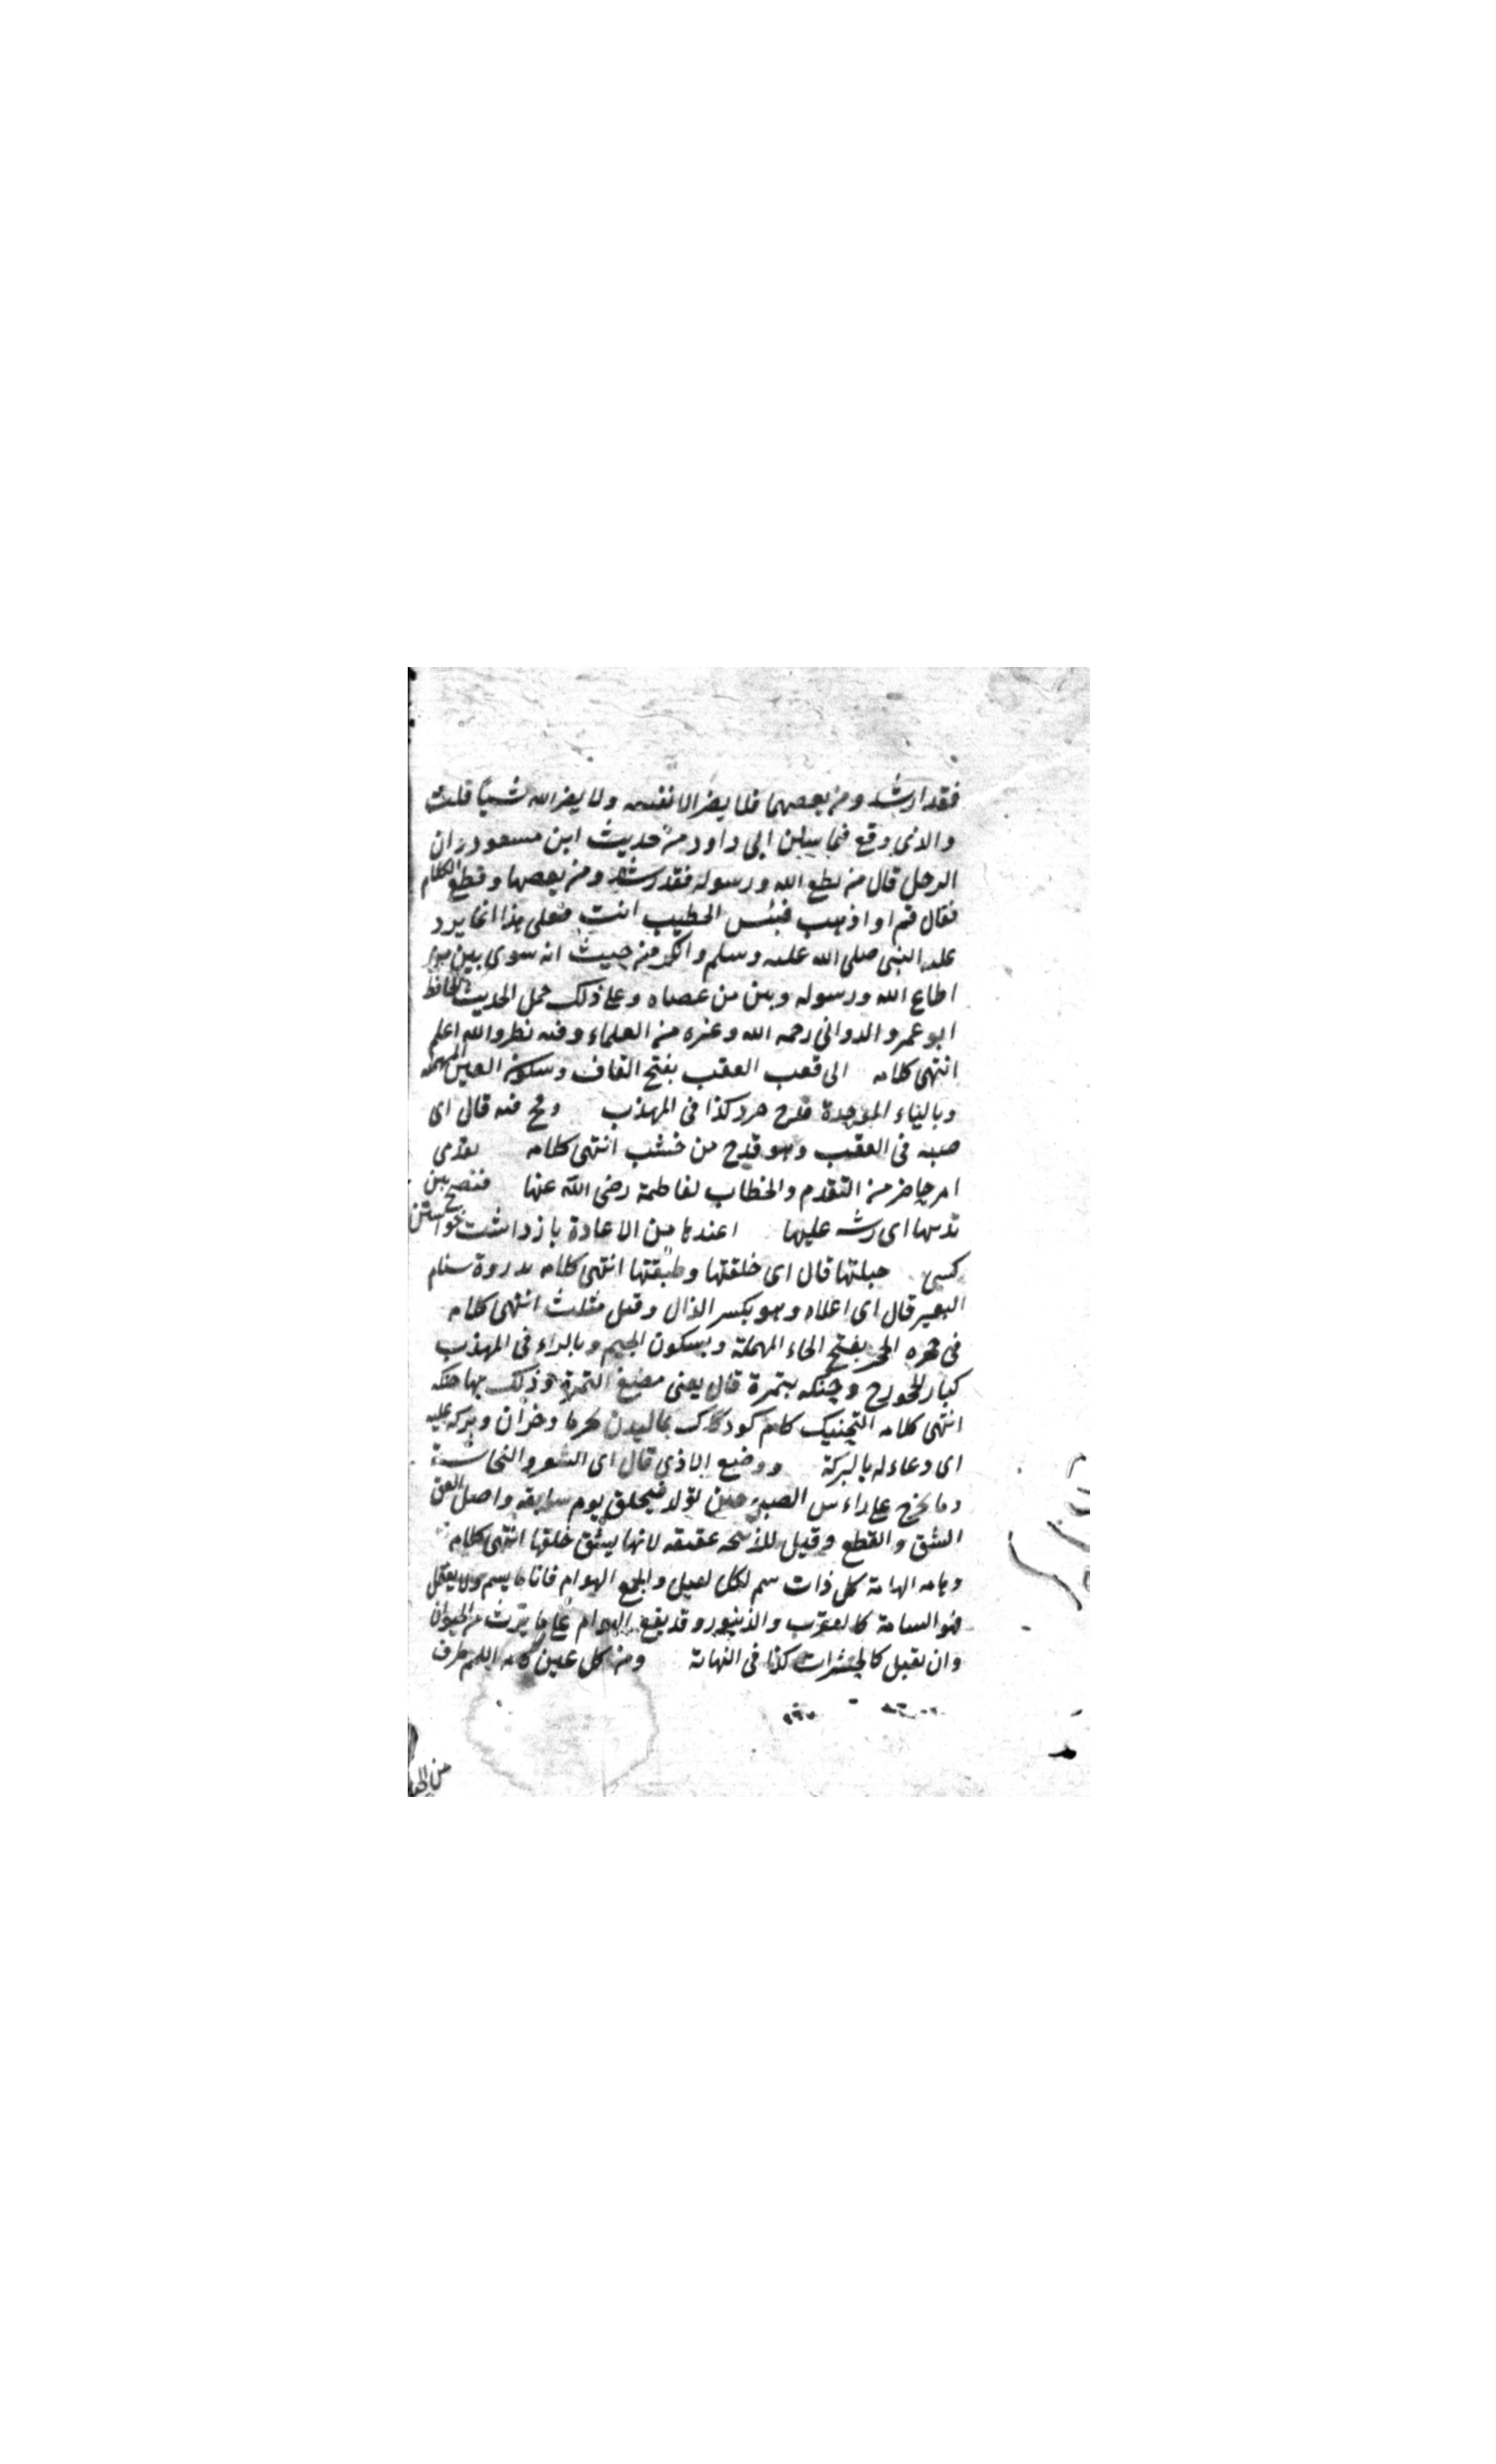 فقد ارشد ومن يعصهما فلا يضر الا نفسه ولا يضر الله شيئا قلت
والذي وقع فيما ابي داود من حديث ابن مسعود ان
الرجل قال من يطع الله ورسوله فقد رشد ومن يعصهما وقطع الكلام
فقال قم او اذهب فبئس الخطيب انت فعلى هذا انما يرد
عليه النبي صلى الله عليه وسلم وانكر من حيث انه سوى بين من
اطاع الله ورسوله وبين من عصاه وعلى ذلك حمل الحديث الحافظ
ابو عمرو الدواني رحمه الله وغيره من العلماء وفيه نظر والله اعلم
انتهى كلامه الى قعب القعب بفتح القاف وسكون العين المهملة
وبالباء الموحدة قدح خرد كذا فى المهذب ومج فيه قال اى
صبه فى القعب وهو قدح من خشب انتهى كلامه تقدمى
امر حاضر من التقدم والخطاب لفاطمة رضى الله عنها فنضح بين
ثديها اى رش عليها اعيذها من الاعاذة باز داشت خواستن
كسى جبلتها قال اى خلقتها وطبيعتها انتهى كلامه بذروة سنام
البعير قال اى اعلاه وهو بكسر الذال وقيل مثلث انتهى كلامه
فى حجره الحجر بفتح الحاء المهملة وبسكون الجيم وبالراء فى المهذب
كبار وحنكه بتمرة قال يعنى مضغ التمرة وذلك بها حنكه
انتهى كلامه التحنيك كام كودك ماليدن بخرما وجزآن وبركه عليه
اى دعاء له بالبركة ووضع الاذى قال اى الشعر والنجاسة
وما يخرج على راس الصبي حين تولد فيحلق يوم سابعه واصل العق
الشق والقطع وقيل للذبيحة عقيقه لانها يشق حلقها انتهى كلامه
وهامه الهامة كل ذات سم يقتل والجمع الهوام فاما ما يسم ولا يقتل
فهو السامة كالعقرب والزنبور وقد يقع الهوام على ما يدب من الحيوان
وان لم يقتل كالحشرات كذا فى النهاية ومن كل عين لامه اللمم طرف